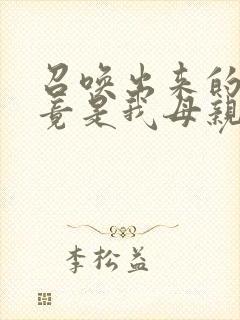 召唤出来的
竟是我母亲
李松益